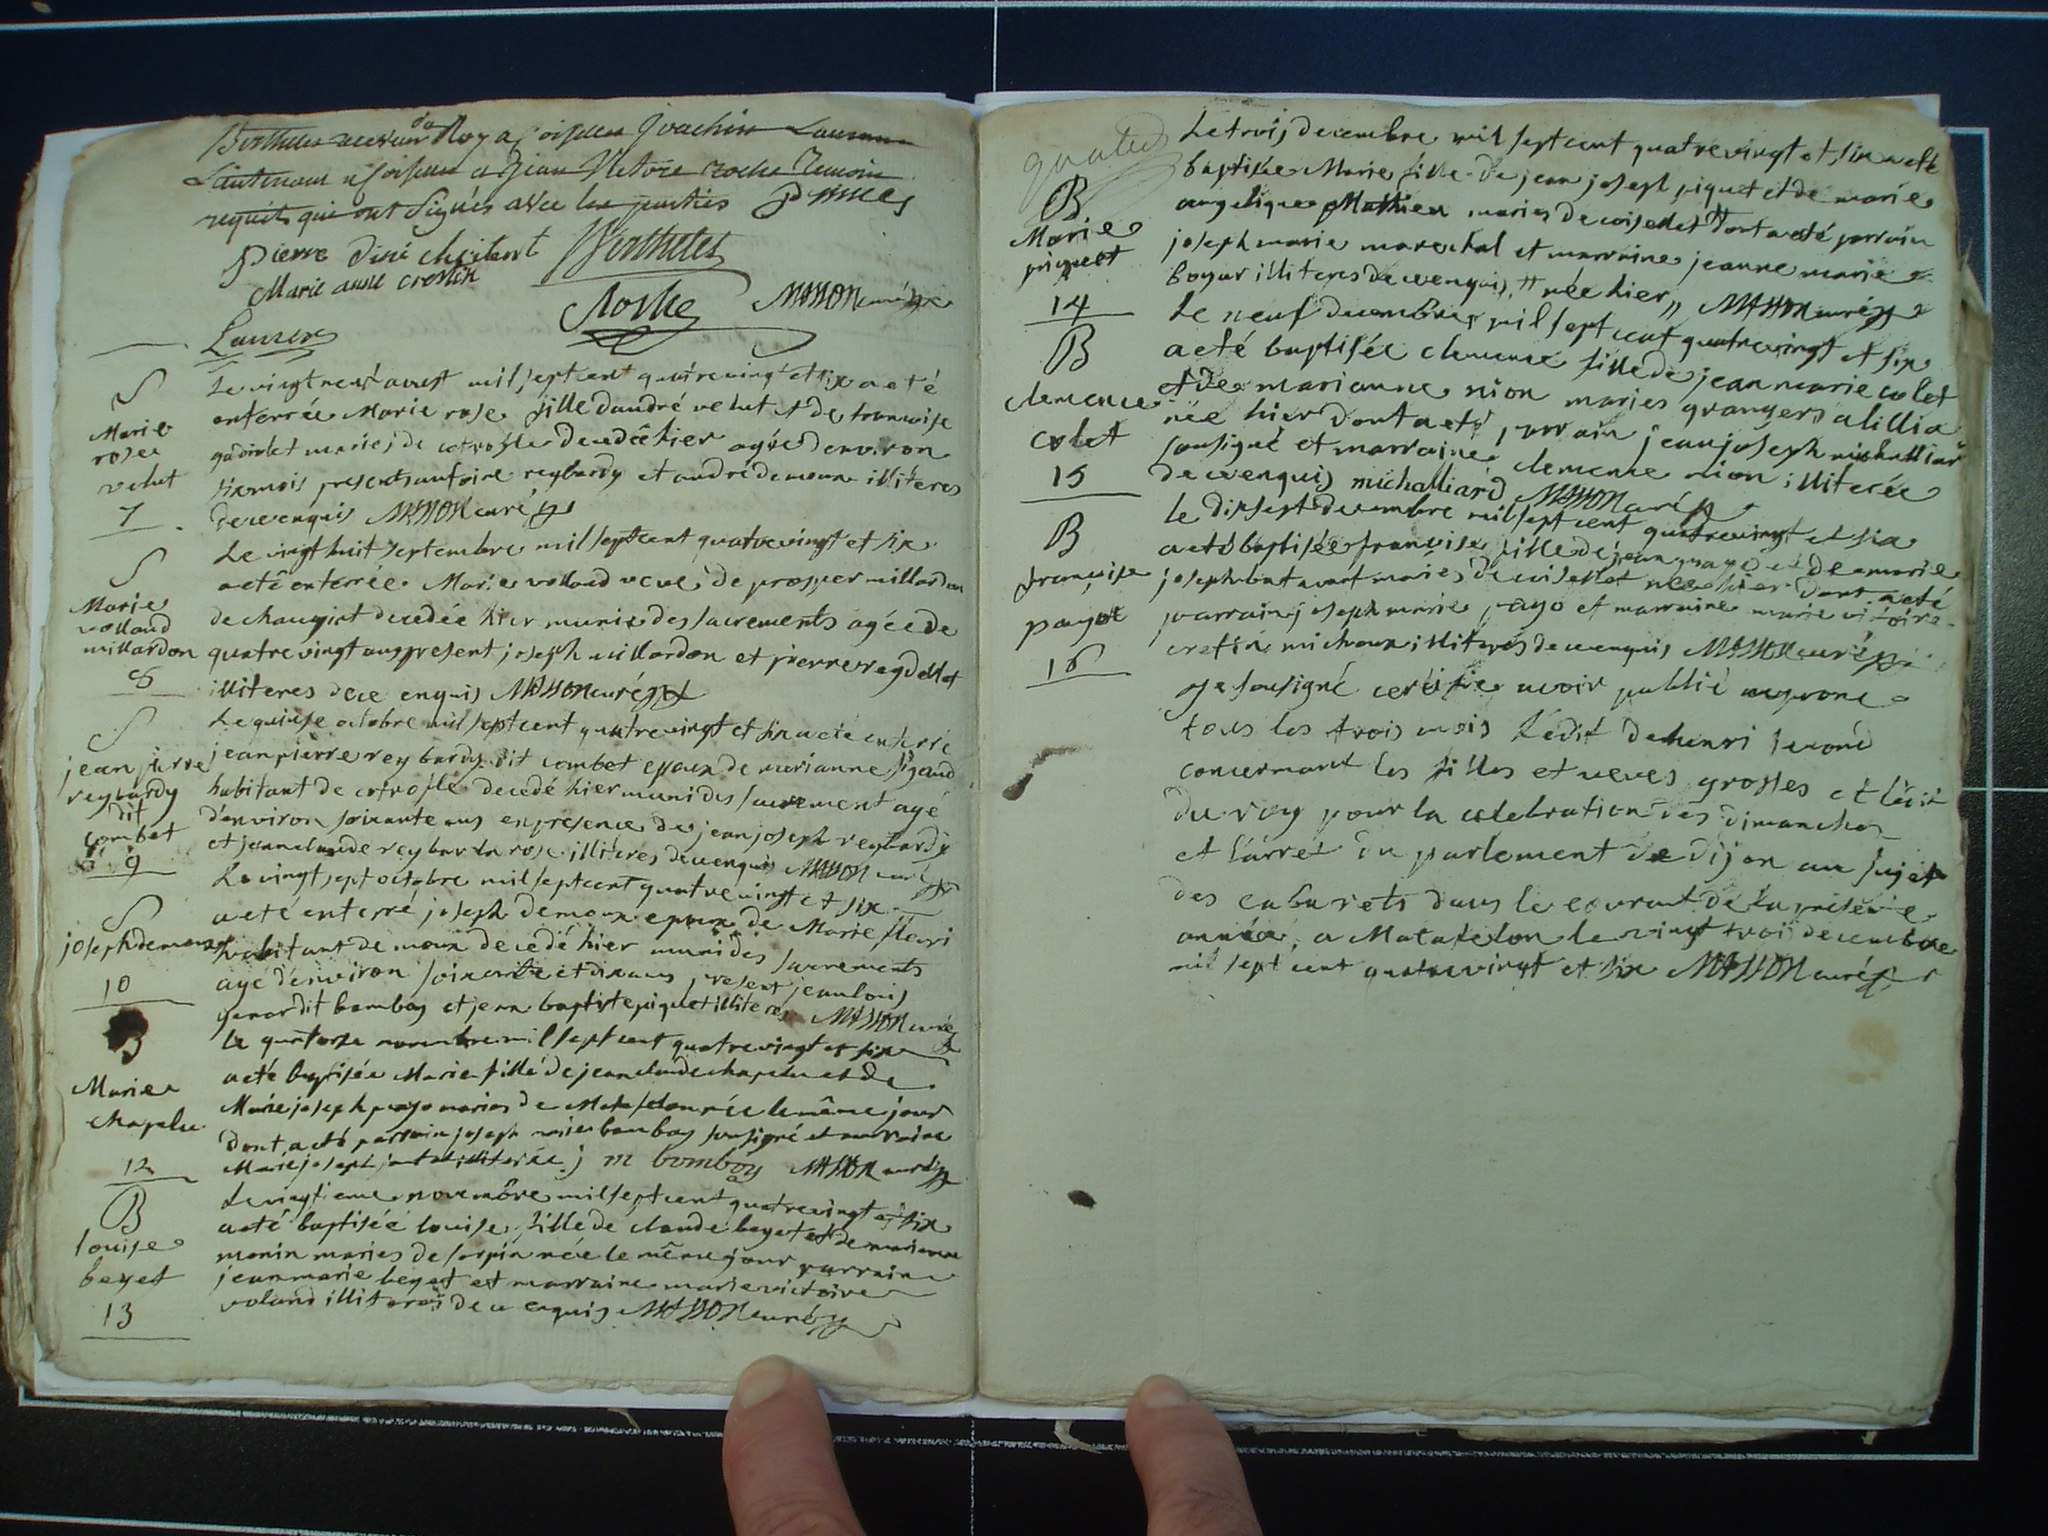 Berthelet receveur du Roy a Coiselet Joachin Laurans
Lieutenant a Coiselet et Jean Victoire roche Temoin
requis qui ont signés avec les parties
pierre
Marie anne crestin
Berthelet
roche
MASSON curé
Laurans
S
Marie
rose
velut
7
Le vingt neuf aoust mil sept cent quatre vingt et six a eté
enterrée Marie rose fille dandré velut et de francoise
mariés de decedée hier agée denviron
six mois presents antoine reybardy et andré demoux illiteres
de ce enquis MASSON curé
S
Marie
volland
millardon
8
Le vingt huit septembre mil sept cent quatre vingt et six
a eté enterrée Marie volland veuve de prosper millardon
de decedée hier munie des sacrements agée de
quatre vingt ans present joseph millardon et pierre reydellet
illiteres de ce enquis MASSON curé
S
jean pierre
reybardy
dit
combet
9
Le quinse octobre mil sept cent quatre vingt et six a eté enterré
jean pierre reybardy dit combet epoux de marianne
habitant de decedé hier muni des sacrement agé
denviron soixante ans en presence de jean joseph reybardy
et jean claude illiteres de ce enquis MASSON curé
S
joseph demoux
10
Le vingt sept octobre mil sept cent quatre vingt et six
a eté enterré joseph demoux epoux de Marie fleuri
habitant de moux decedé hier muni des sacrements
agé denviron soixante et dix ans present jean louis
dit bamboy et jean baptiste piquet illiteres MASSON curé
B
Marie
chapelu
12
Le quatorze novembre mil sept cent quatre vingt et six
a eté baptisée Marie fille de jean claude chapelu et de
Marie joseph payo mariés de Matafelon née le même jour
dont a eté parrain joseph marie bamboy sousigné et marraine
Marie joseph illiterée j m bomboy MASSON curé
B
louise
beyet
13
Le vingtieme novembre mil sept cent quatre vingt et six
a eté baptisée louise fille de claude beyet et de marianne
monin mariés de sorpia née le même jour parrain
jean marie beyet et marraine marie victoire
voland illiterés de ce enquis MASSON curé
B
Marie
piquet
14
Le trois decembre mil sept cent quatre vingt et six a eté
baptisée Marie fille de jean joseph piquet et de marie
angelique Mathieu mariés de coiselet dont a eté parrain
joseph marie marechal et marraine jeanne marie
illiteres de ce enquis, née hier MASSON curé
B
clemence
colet
15
Le neuf decembre mil sept cent quatre vingt et six
a eté baptisée clemence fille de jean marie colet
et de marianne nion mariés grangers a lillia
née hier dont a eté parrain jean joseph michalliard
sousigné et marraine clemence nion illiterée
de ce enquis michalliard MASSON curé
B
françoise
payot
16
Le dix sept decembre mil sept cent quatre vingt et six
a eté baptisée françoise fille de jean payo et de marie
joseph mariés de coisellet née hier dont a eté
parrain joseph marie payo et marraine marie victoire
cretin michoux illiterés de ce enquis MASSON curé
Je sousigné certifie avoir publié au prone
tous les trois mois l'edit de henri second
concernant les filles et veuves grosses et l'edit
du roy pour la celebration des dimanches
et l'arret du parlement de dijon au sujet
des cabarets dans le courant de la presente
année, a Matafelon le vingt trois decembre
mil sept cent quatre vingt et six MASSON curé